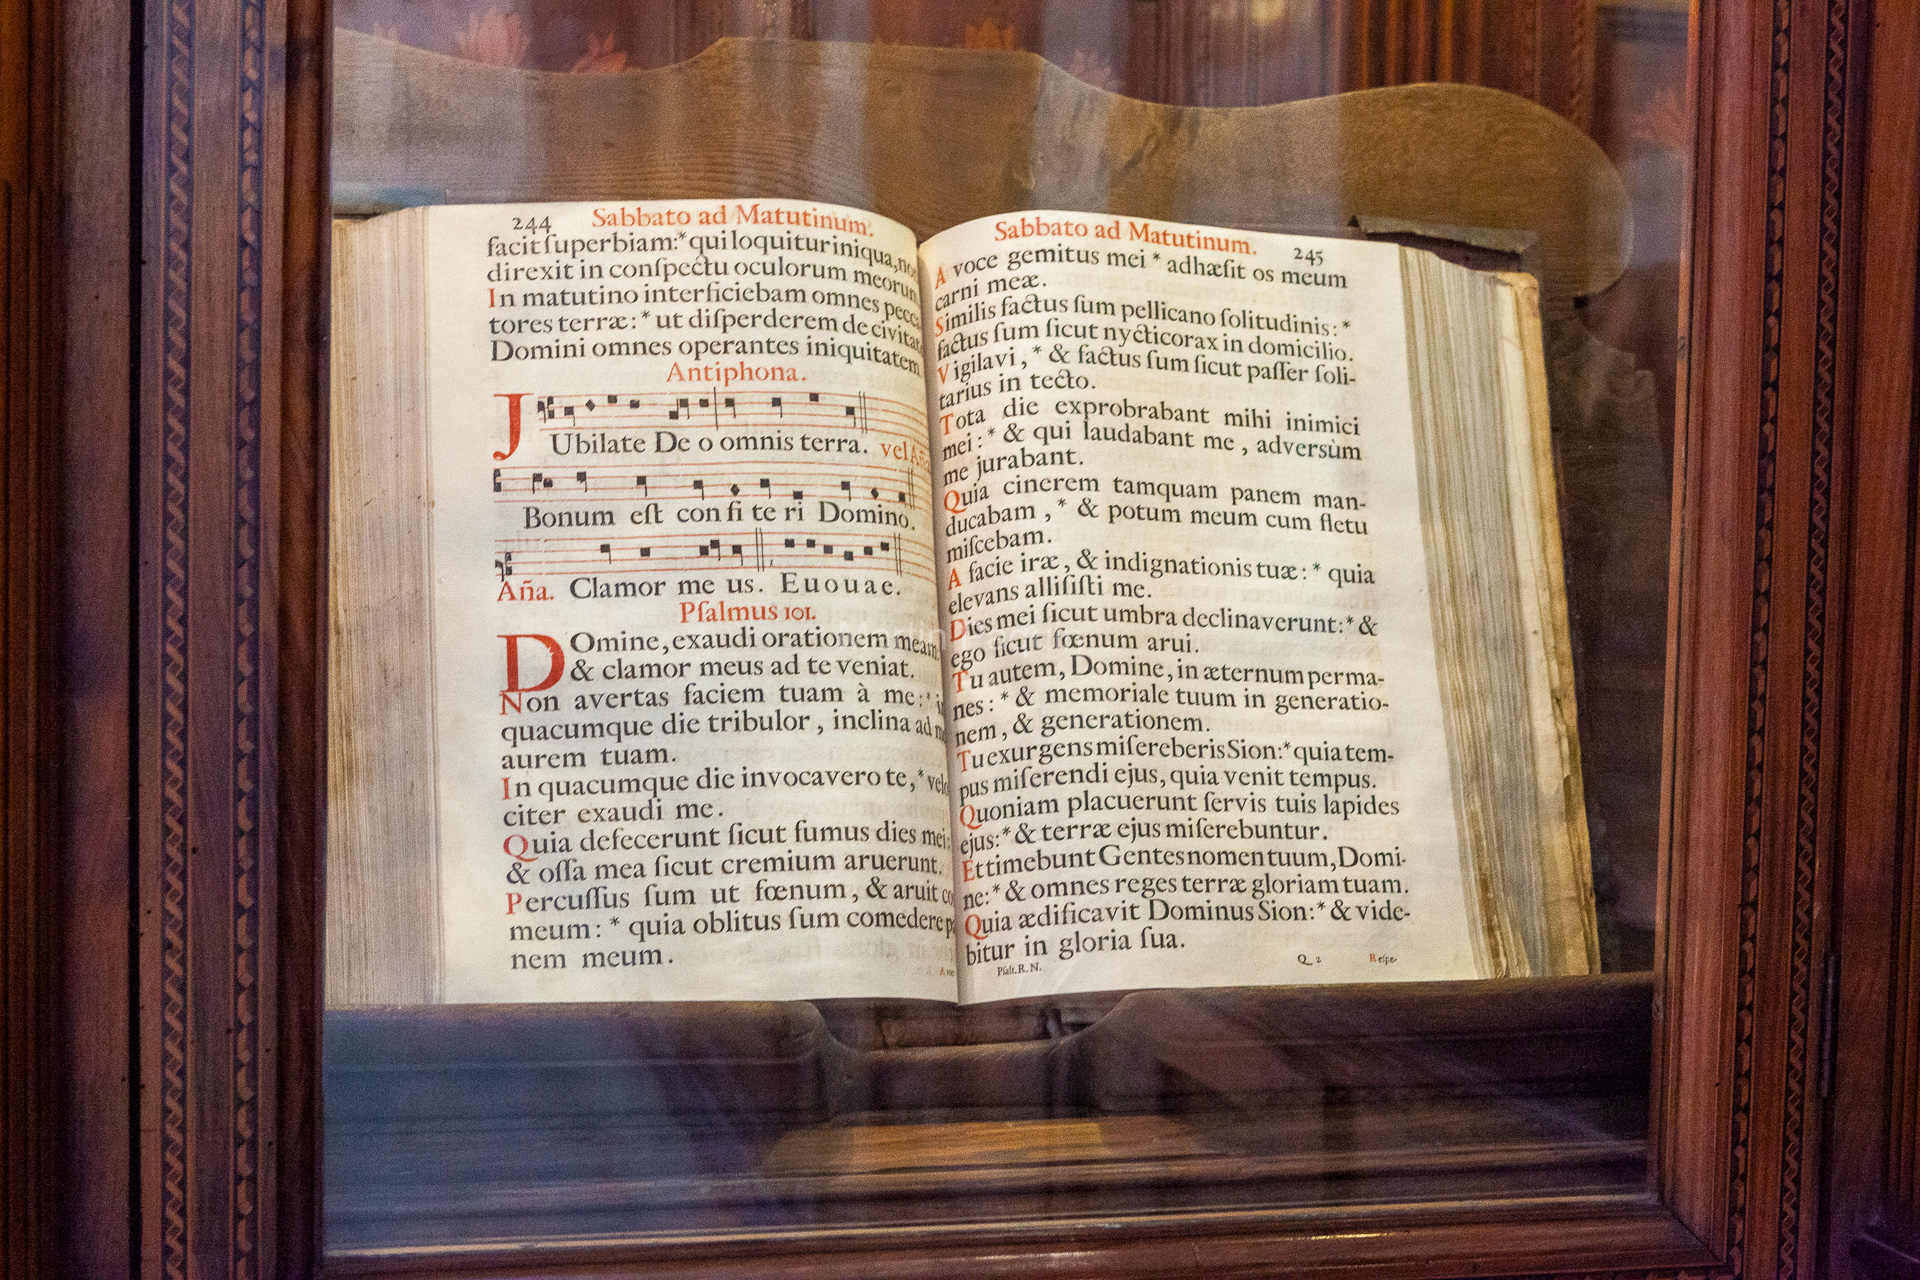 244 Sabbato ad Matutinum.
facit ſuperbiam:* qui loquitur iniqua, non
direxit in conſpectu oculorum meorum
In matutino interficiebam omnes pecca
tores terræ:* ut diſperderem de civitate
Domini omnes operantes iniquitatem.
Antiphona.
JUbilate De o omnis terra. vel Aña
Bonum eſt con fi te ri Domino.
Aña. Clamor me us. E u o u a e.
Pſalmus 101.
DOmine, exaudi orationem meam
& clamor meus ad te veniat.
Non avertas faciem tuam à me:* in
quacumque die tribulor, inclina ad
aurem tuam.
In quacumque die invocavero te,* velo
citer exaudi me.
Quia defecerunt ſicut fumus dies mei:
& oſſa mea ſicut cremium aruerunt.
Percuſſus ſum ut fœnum, & aruit co
meum:* quia oblitus ſum comedere
nem meum.
Sabbato ad Matutinum. 245
A voce gemitus mei * adhæſit os meum
carni meæ.
Similis factus ſum pellicano ſolitudinis:*
factus ſum ſicut nycticorax in domicilio.
Vigilavi,* & factus ſum ſicut paſſer ſoli-
tarius in tecto.
Tota die exprobrabant mihi inimici
mei:* & qui laudabant me, adversùm
me jurabant.
Quia cinerem tamquam panem man-
ducabam,* & potum meum cum fletu
miſcebam.
A facie iræ, & indignationis tuæ:* quia
elevans alliſiſti me.
Dies mei ſicut umbra declinaverunt:* &
ego ſicut fœnum arui.
Tu autem, Domine, in æternum perma-
nes:* & memoriale tuum in generatio-
nem, & generationem.
Tu exurgens miſereberis Sion:* quia tem-
pus miſerendi ejus, quia venit tempus.
Quoniam placuerunt ſervis tuis lapides
ejus:* & terræ ejus miſerebuntur.
Et timebunt Gentes nomen tuum, Domi-
ne:* & omnes reges terræ gloriam tuam.
Quia ædificavit Dominus Sion:* & vide-
bitur in gloria ſua.
Pſalt. R. N. Q 2 Reſpe-